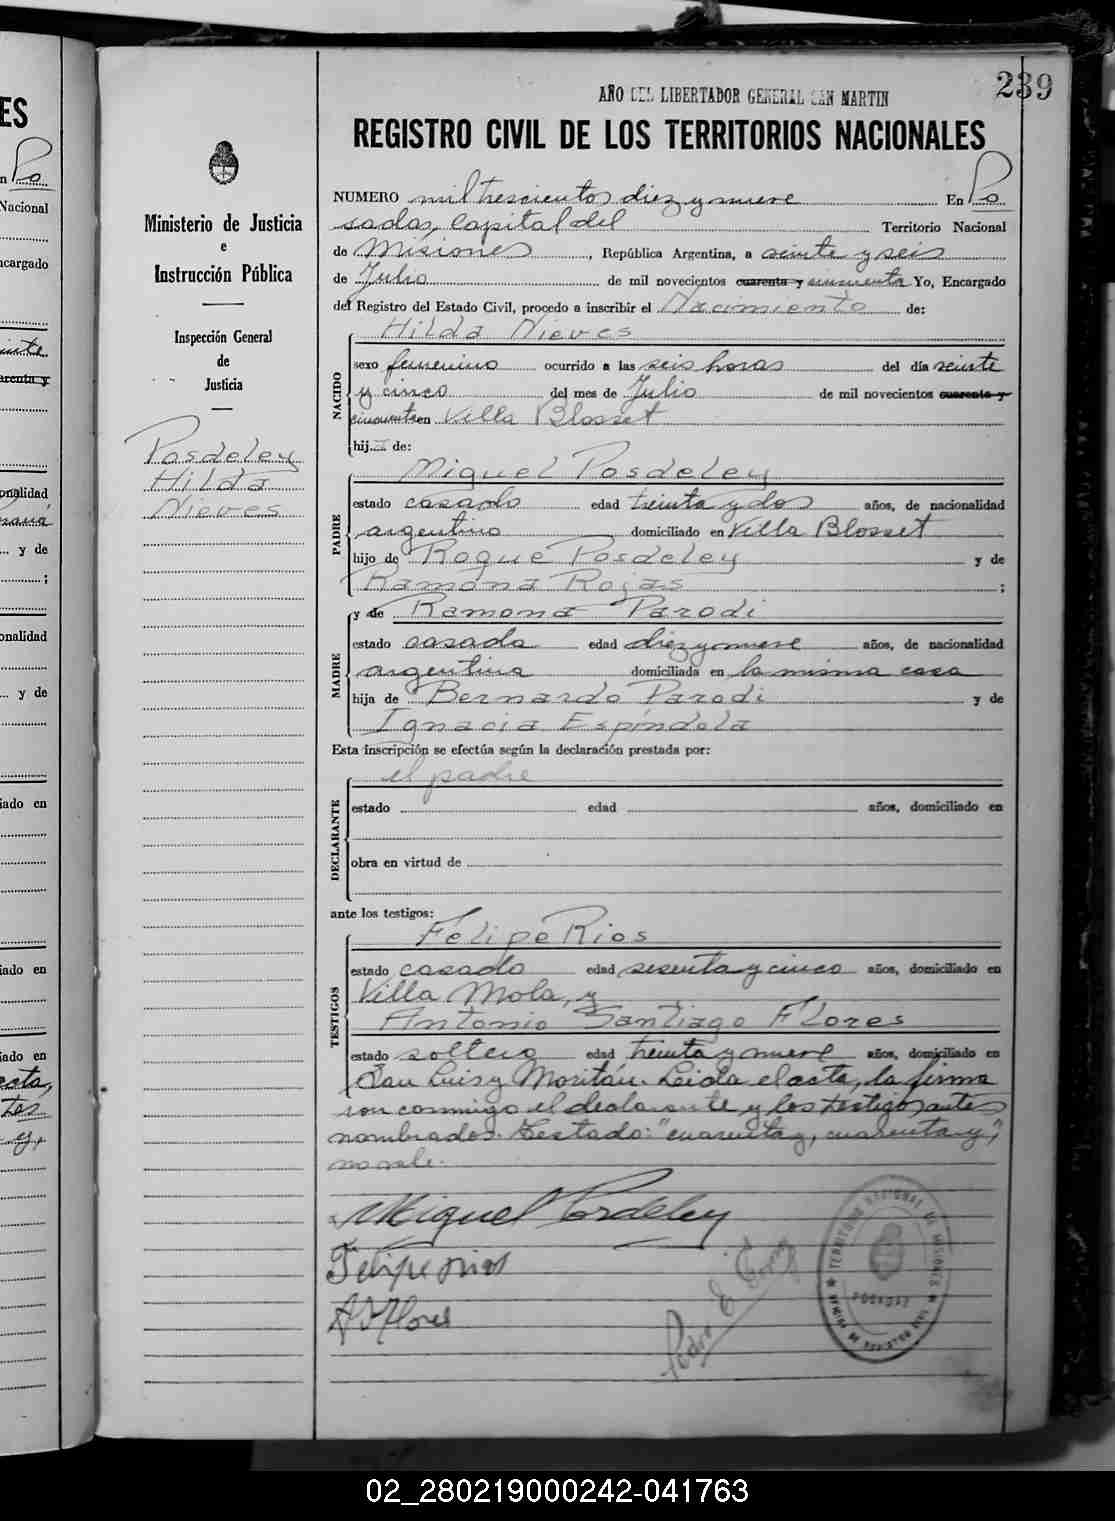 239
AÑO DEL LIBERTADOR GENERAL SAN MARTIN
REGISTRO CIVIL DE LOS TERRITORIOS NACIONALES
Ministerio de Justicia
e
Instrucción Pública
Inspección General
de
Justicia
Posdeley
Hilda
Nieves
NUMERO mil trescientos diez y nueve En Po
sadas, capital del Territorio Nacional
de Misiones, República Argentina, a veinte y seis
de Julio de mil novecientos cuarenta y cincuenta Yo, Encargado
del Registro del Estado Civil, procedo a inscribir el Nacimiento de:
Hilda Nieves
NACIDO
sexo femenino ocurrido a las seis horas del día veinte
y cinco del mes de Julio de mil novecientos cuarenta y
cincuenta en Villa Blosset
hij de:
Miguel Posdeley
PADRE
estado casado edad treinta y dos años, de nacionalidad
argentino domiciliado en Villa Blosset
hijo de Roque Posdeley y de
Ramona Rojas ;
y de Ramona Parodi
MADRE
estado casada edad diez y nueve años, de nacionalidad
argentina domiciliada en la misma casa
hija de Bernardo Parodi y de
Ignacia Espíndola
Esta inscripción se efectúa según la declaración prestada por:
el padre
DECLARANTE
estado edad años, domiciliado en
obra en virtud de
ante los testigos:
Felipe Rios
TESTIGOS
estado casado edad sesenta y cinco años, domiciliado en
Villa Mola, y
Antonio Santiago Flores
estado soltero edad treinta y nueve años, domiciliado en
San Luis y Moritán. Leída el acta, la firma
con conmigo el declarante y los testigos antes
nombrados. Testado: "cuarenta y, cuarenta y",
no vale.
Miguel Posdeley
Felipe rios
A S Flores
Pedro E
TERRITORIO NACIONAL DE MISIONES
POSADAS
OFICINA DE REGISTRO CIVIL
ES
n Po
Nacional
ncargado
arenta y
onalidad
... y de
;
onalidad
... y de
iado en
iado en
iado en
02_280219000242-041763